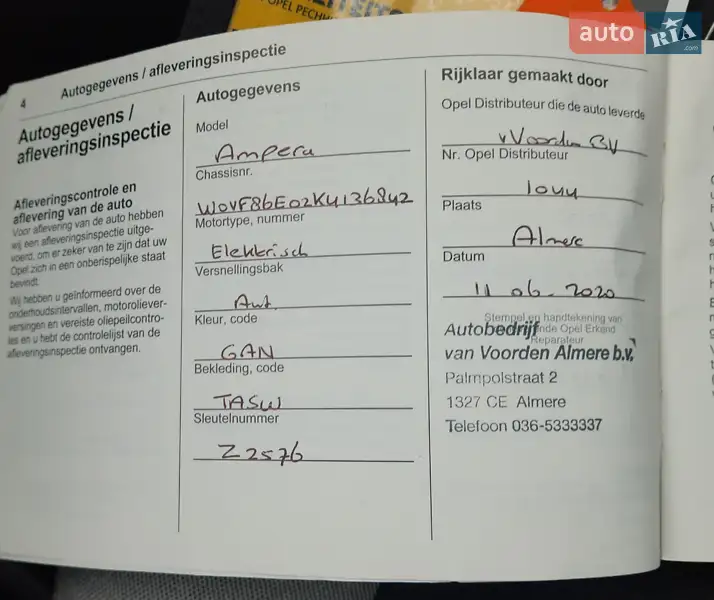 OPEL PECHH
auto RIA
.com
4
Autogegevens / afleveringsinspectie
Autogegevens /
afleveringsinspectie
Afleveringscontrole en
aflevering van de auto
Voor aflevering van de auto hebben
wij een afleveringsinspectie uitge-
voerd, om er zeker van te zijn dat uw
Opel zich in een onberispelijke staat
bevindt.
Wij hebben u geïnformeerd over de
onderhoudsintervallen, motoroliever-
versingen en vereiste oliepeilcontro-
les en u hebt de controlelijst van de
afleveringsinspectie ontvangen.
Autogegevens
Model
Ampera
Chassisnr.
W0VF86E02K4136842
Motortype, nummer
Elektrisch
Versnellingsbak
Aut
Kleur, code
GAN
Bekleding, code
TASW
Sleutelnummer
Z2576
Rijklaar gemaakt door
Opel Distributeur die de auto leverde
v Voorden BV
Nr. Opel Distributeur
Plaats
Almere
Datum
11 06. 2020
Stempel en handtekening van
Autobedrijf nde Opel Erkend
Reparateur
van Voorden Almere b.v.
Palmpolstraat 2
1327 CE Almere
Telefoon 036-5333337